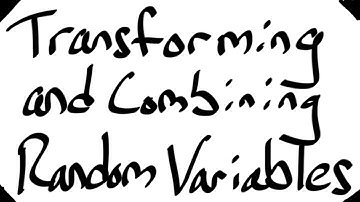 Transforming
and Combining
Random Variables